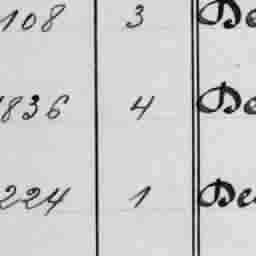 108 3 De
836 4 De
224 1 De